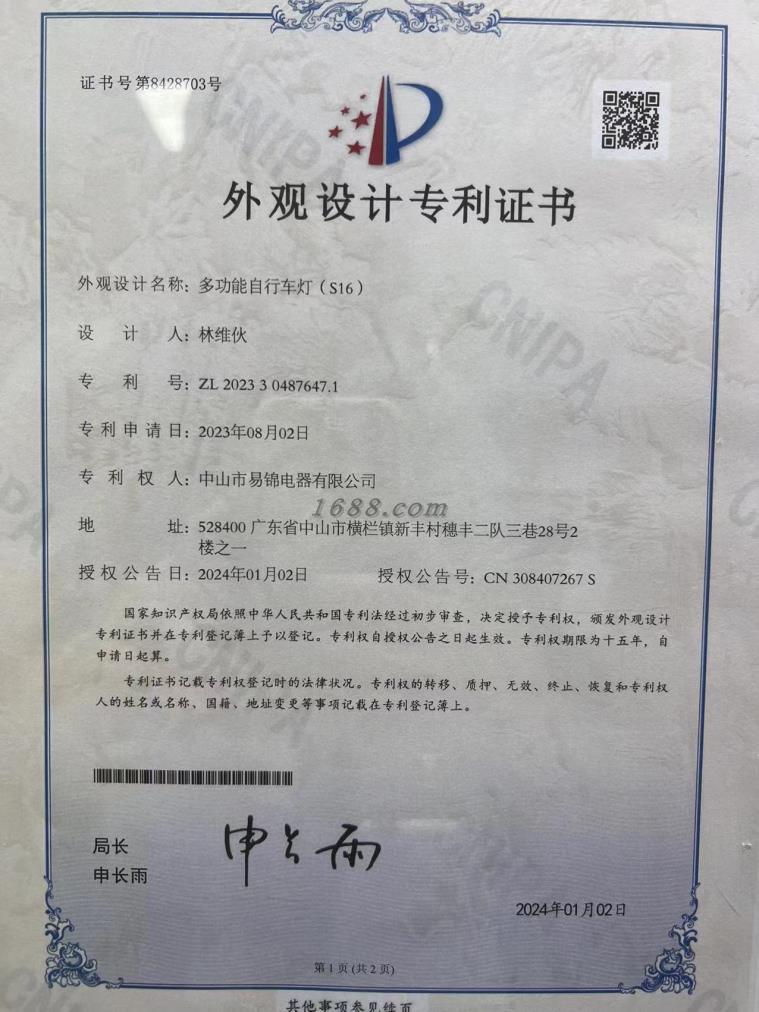 证书号第8428703号
外观设计专利证书
外观设计名称：多功能自行车灯（S16）
设计人：林维伙
专利号：ZL 2023 3 0487647.1
专利申请日：2023年08月02日
专利权人：中山市易锦电器有限公司
1688.com
地址：528400 广东省中山市横栏镇新丰村穗丰二队三巷28号2
楼之一
授权公告日：2024年01月02日 授权公告号：CN 308407267 S
国家知识产权局依照中华人民共和国专利法经过初步审查，决定授予专利权，颁发外观设计
专利证书并在专利登记簿上予以登记。专利权自授权公告之日起生效。专利权期限为十五年，自
申请日起算。
专利证书记载专利权登记时的法律状况。专利权的转移、质押、无效、终止、恢复和专利权
人的姓名或名称、国籍、地址变更等事项记载在专利登记簿上。
局长
申长雨
申长雨
2024年01月02日
第1页(共2页)
其他事项参见续页
CNIPA
CNIPA
CNIPA
CNIPA